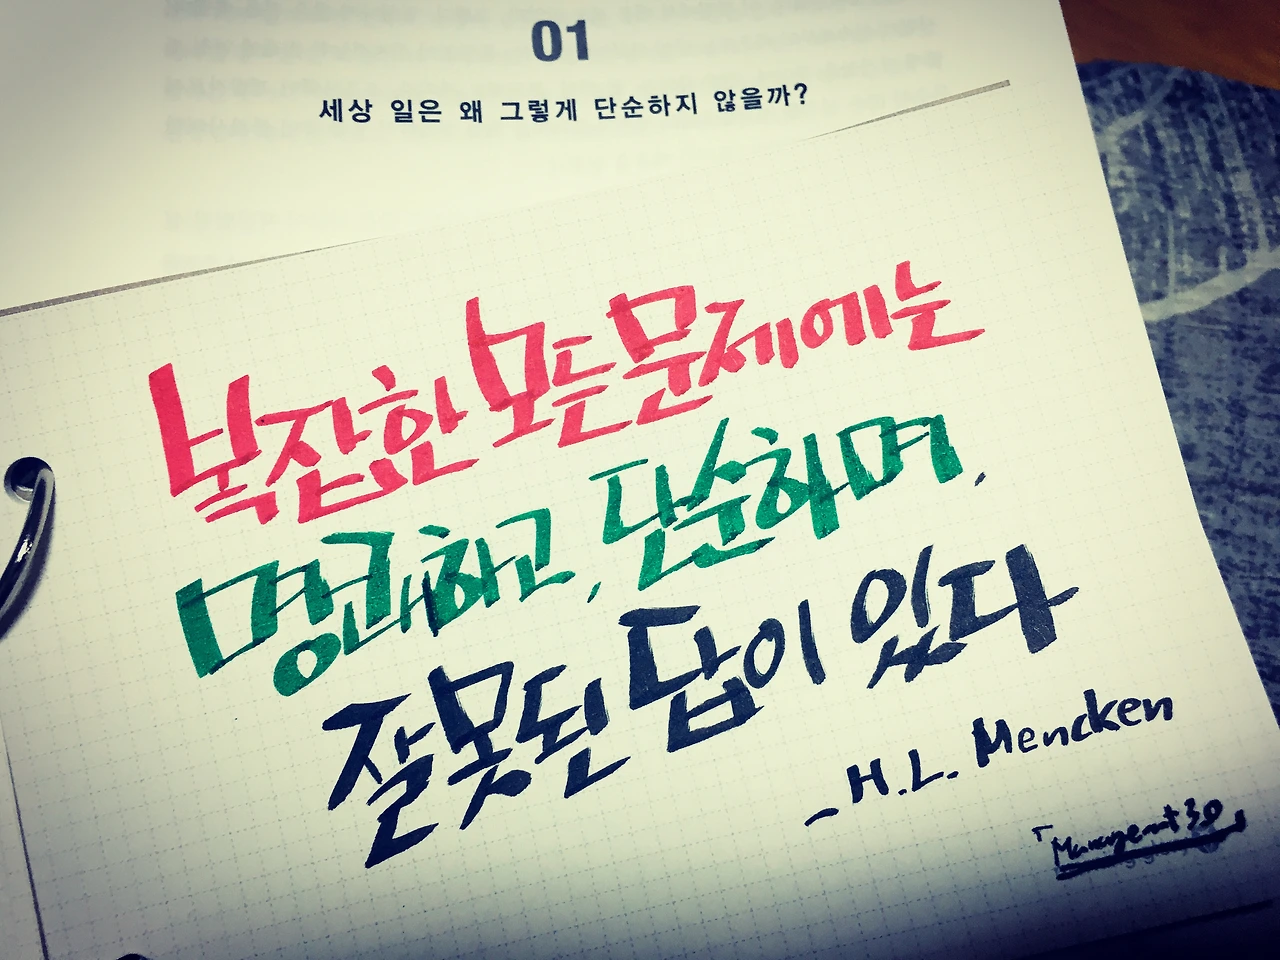 01
세상 일은 왜 그렇게 단순하지 않을까?
복잡한 모든 문제에는
명쾌하고, 단순하며,
잘못된 답이 있다
_ H.L. Mencken
「Management 3.0